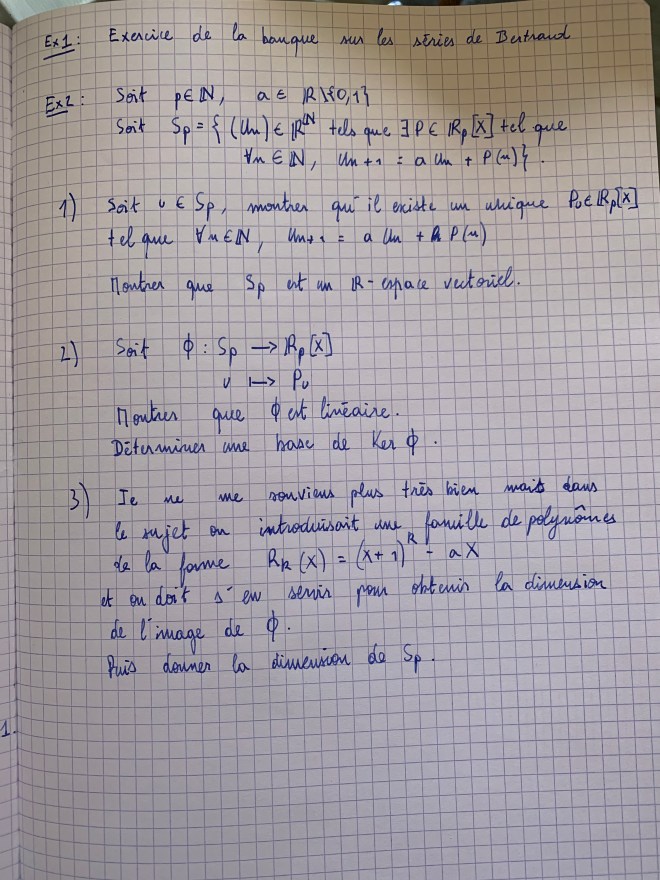 Ex1 : Exercice de la banque sur les séries de Bertrand
Ex2 : Soit p ∈ ℕ, a ∈ ℝ\{0,1}
Soit Sp = { (un) ∈ ℝ^ℕ tels que ∃ P ∈ ℝp[X] tel que
∀n ∈ ℕ, un+1 = a un + P(n)}.
1) Soit u ∈ Sp, montrer qu'il existe un unique Pu ∈ ℝp[X]
tel que ∀n ∈ ℕ, un+1 = a un + P(n)
Montrer que Sp est un ℝ-espace vectoriel.
2) Soit ϕ : Sp → ℝp[X]
u ↦ Pu
Montrer que ϕ est linéaire.
Déterminer une base de Ker ϕ.
3) Je ne me souviens plus très bien mais dans
le sujet on introduisait une famille de polynômes
de la forme Rk(X) = (X+1)^k - aX
et on doit s'en servir pour obtenir la dimension
de l'image de ϕ.
Puis donner la dimension de Sp.
1.